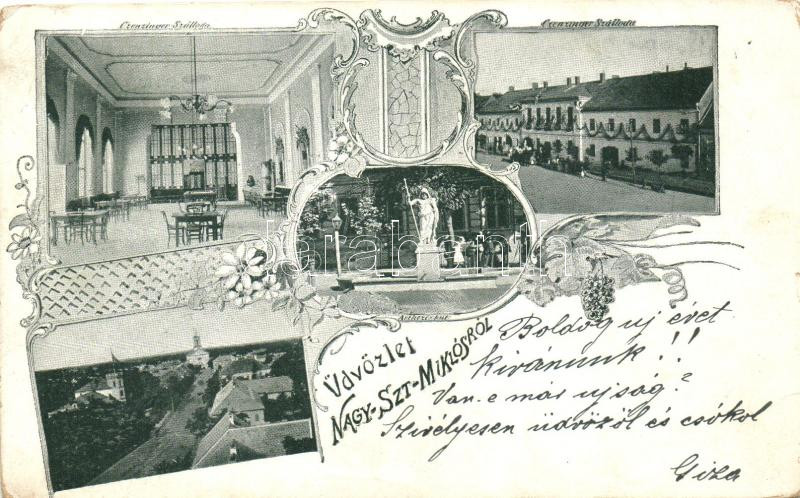 Czenzinger Szálloda
Czenzinger Szálloda
Üdvözlet
Nagy-Szt-Miklósról
Boldog uj évet
kivánunk!!
Van-e már ujság?
Szivélyesen üdvözöl és csókol
Giza
darabanth.com